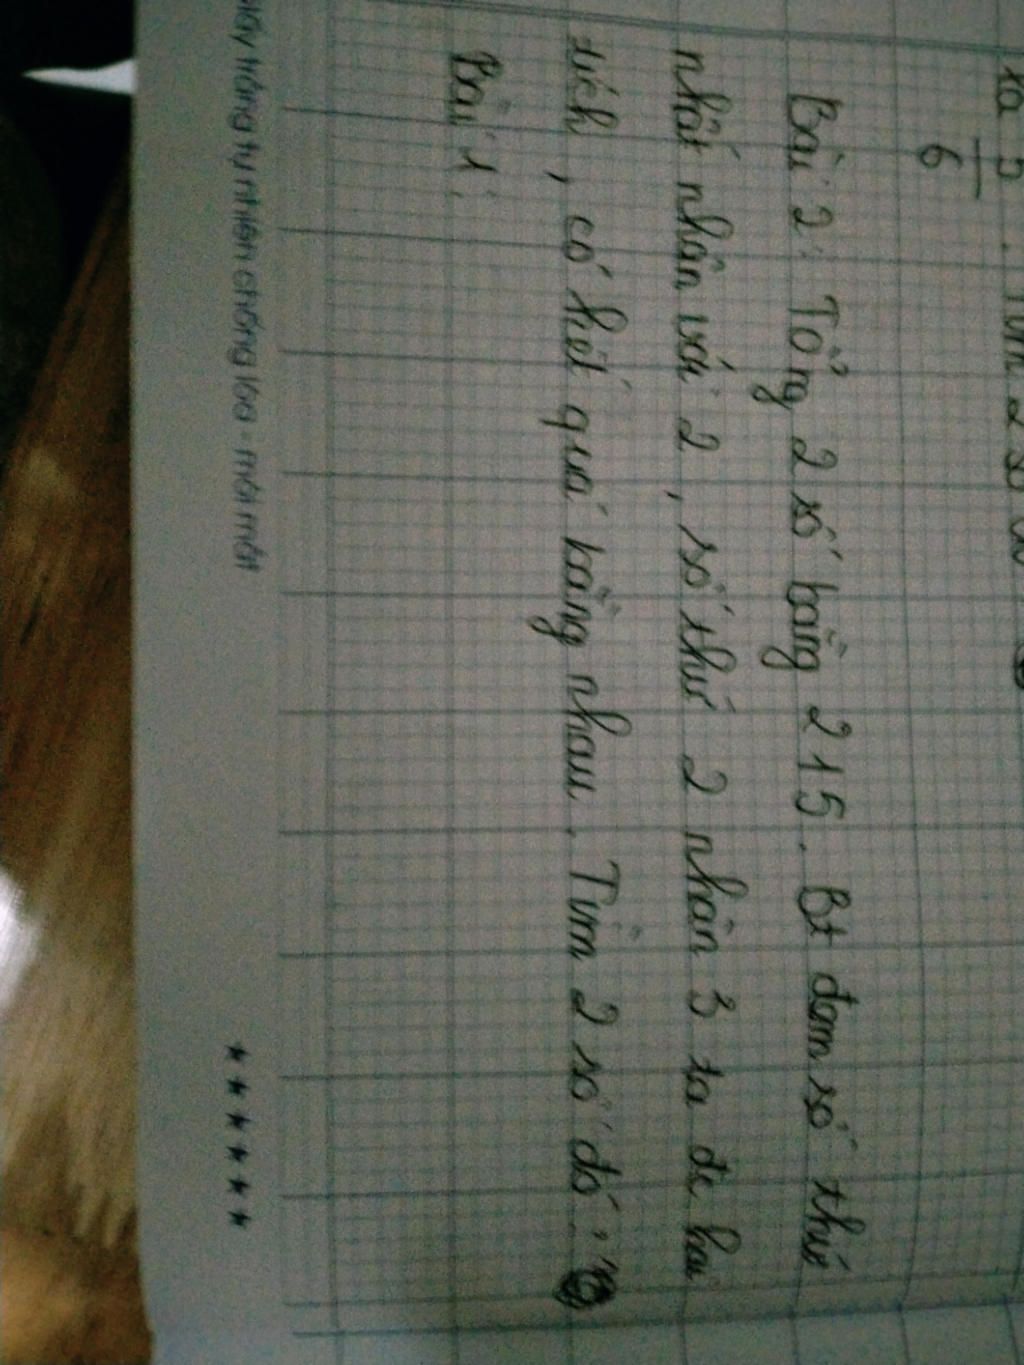 6
Bài 2: Tổng 2 số bằng 215. Bt đem số thứ
nhất nhân với 2, số thứ 2 nhân 3 ta đc hai
tích, có kết quả bằng nhau. Tìm 2 số đó.
Bài 1:
Giấy trắng tự nhiên chống lóa - mỏi mắt